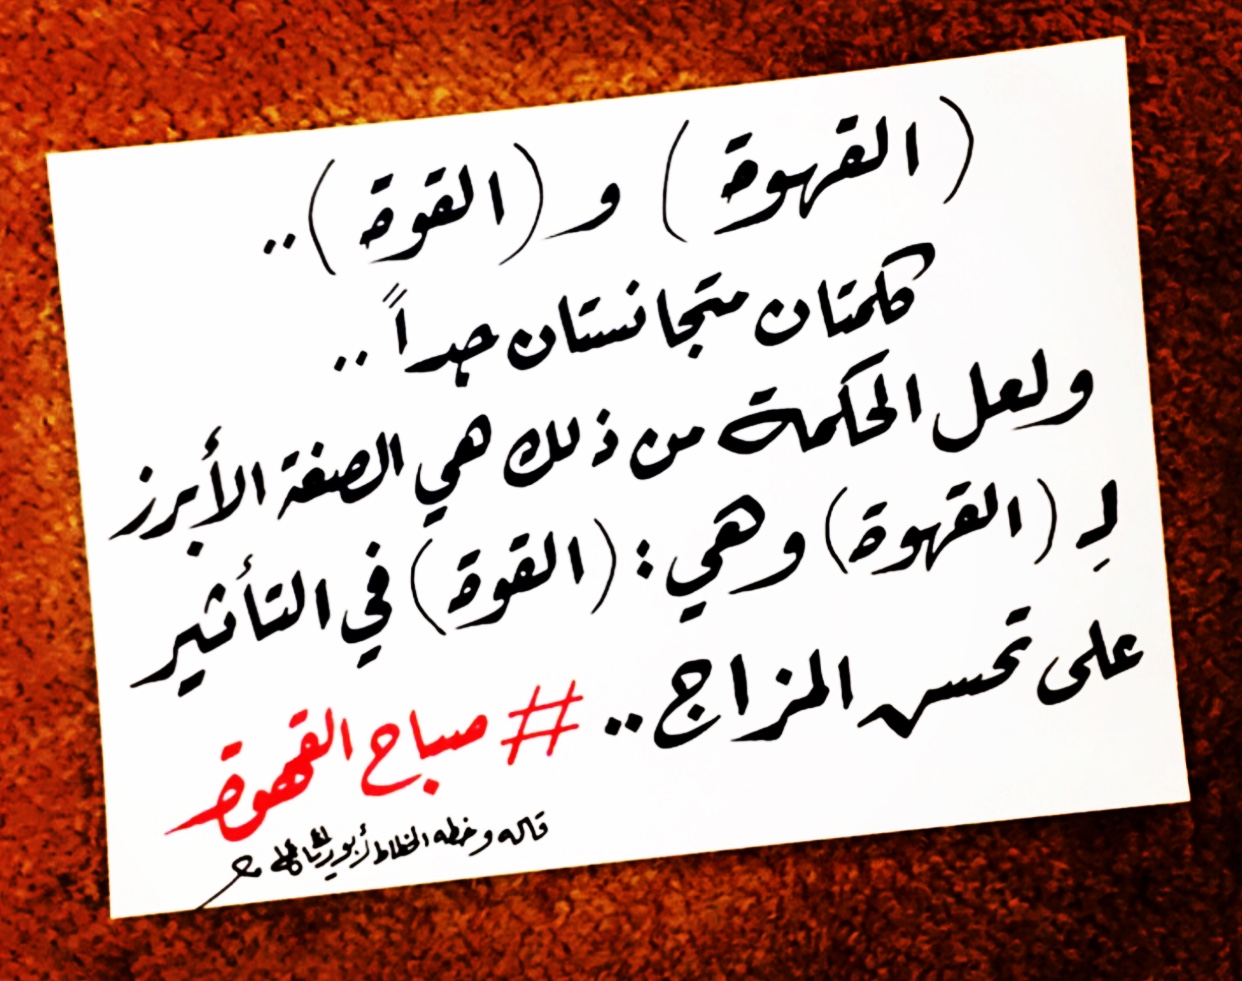 (القهوة) و (القوة) ..
كلمتان متجانستان جداً ..
ولعل الحكمة من ذلك هي الصفة الأبرز
لِـ (القهوة) وهي : (القوة) في التأثير
على تحسن المزاج .. # صباح القهوة
قاله وخطه الخطاط أبو